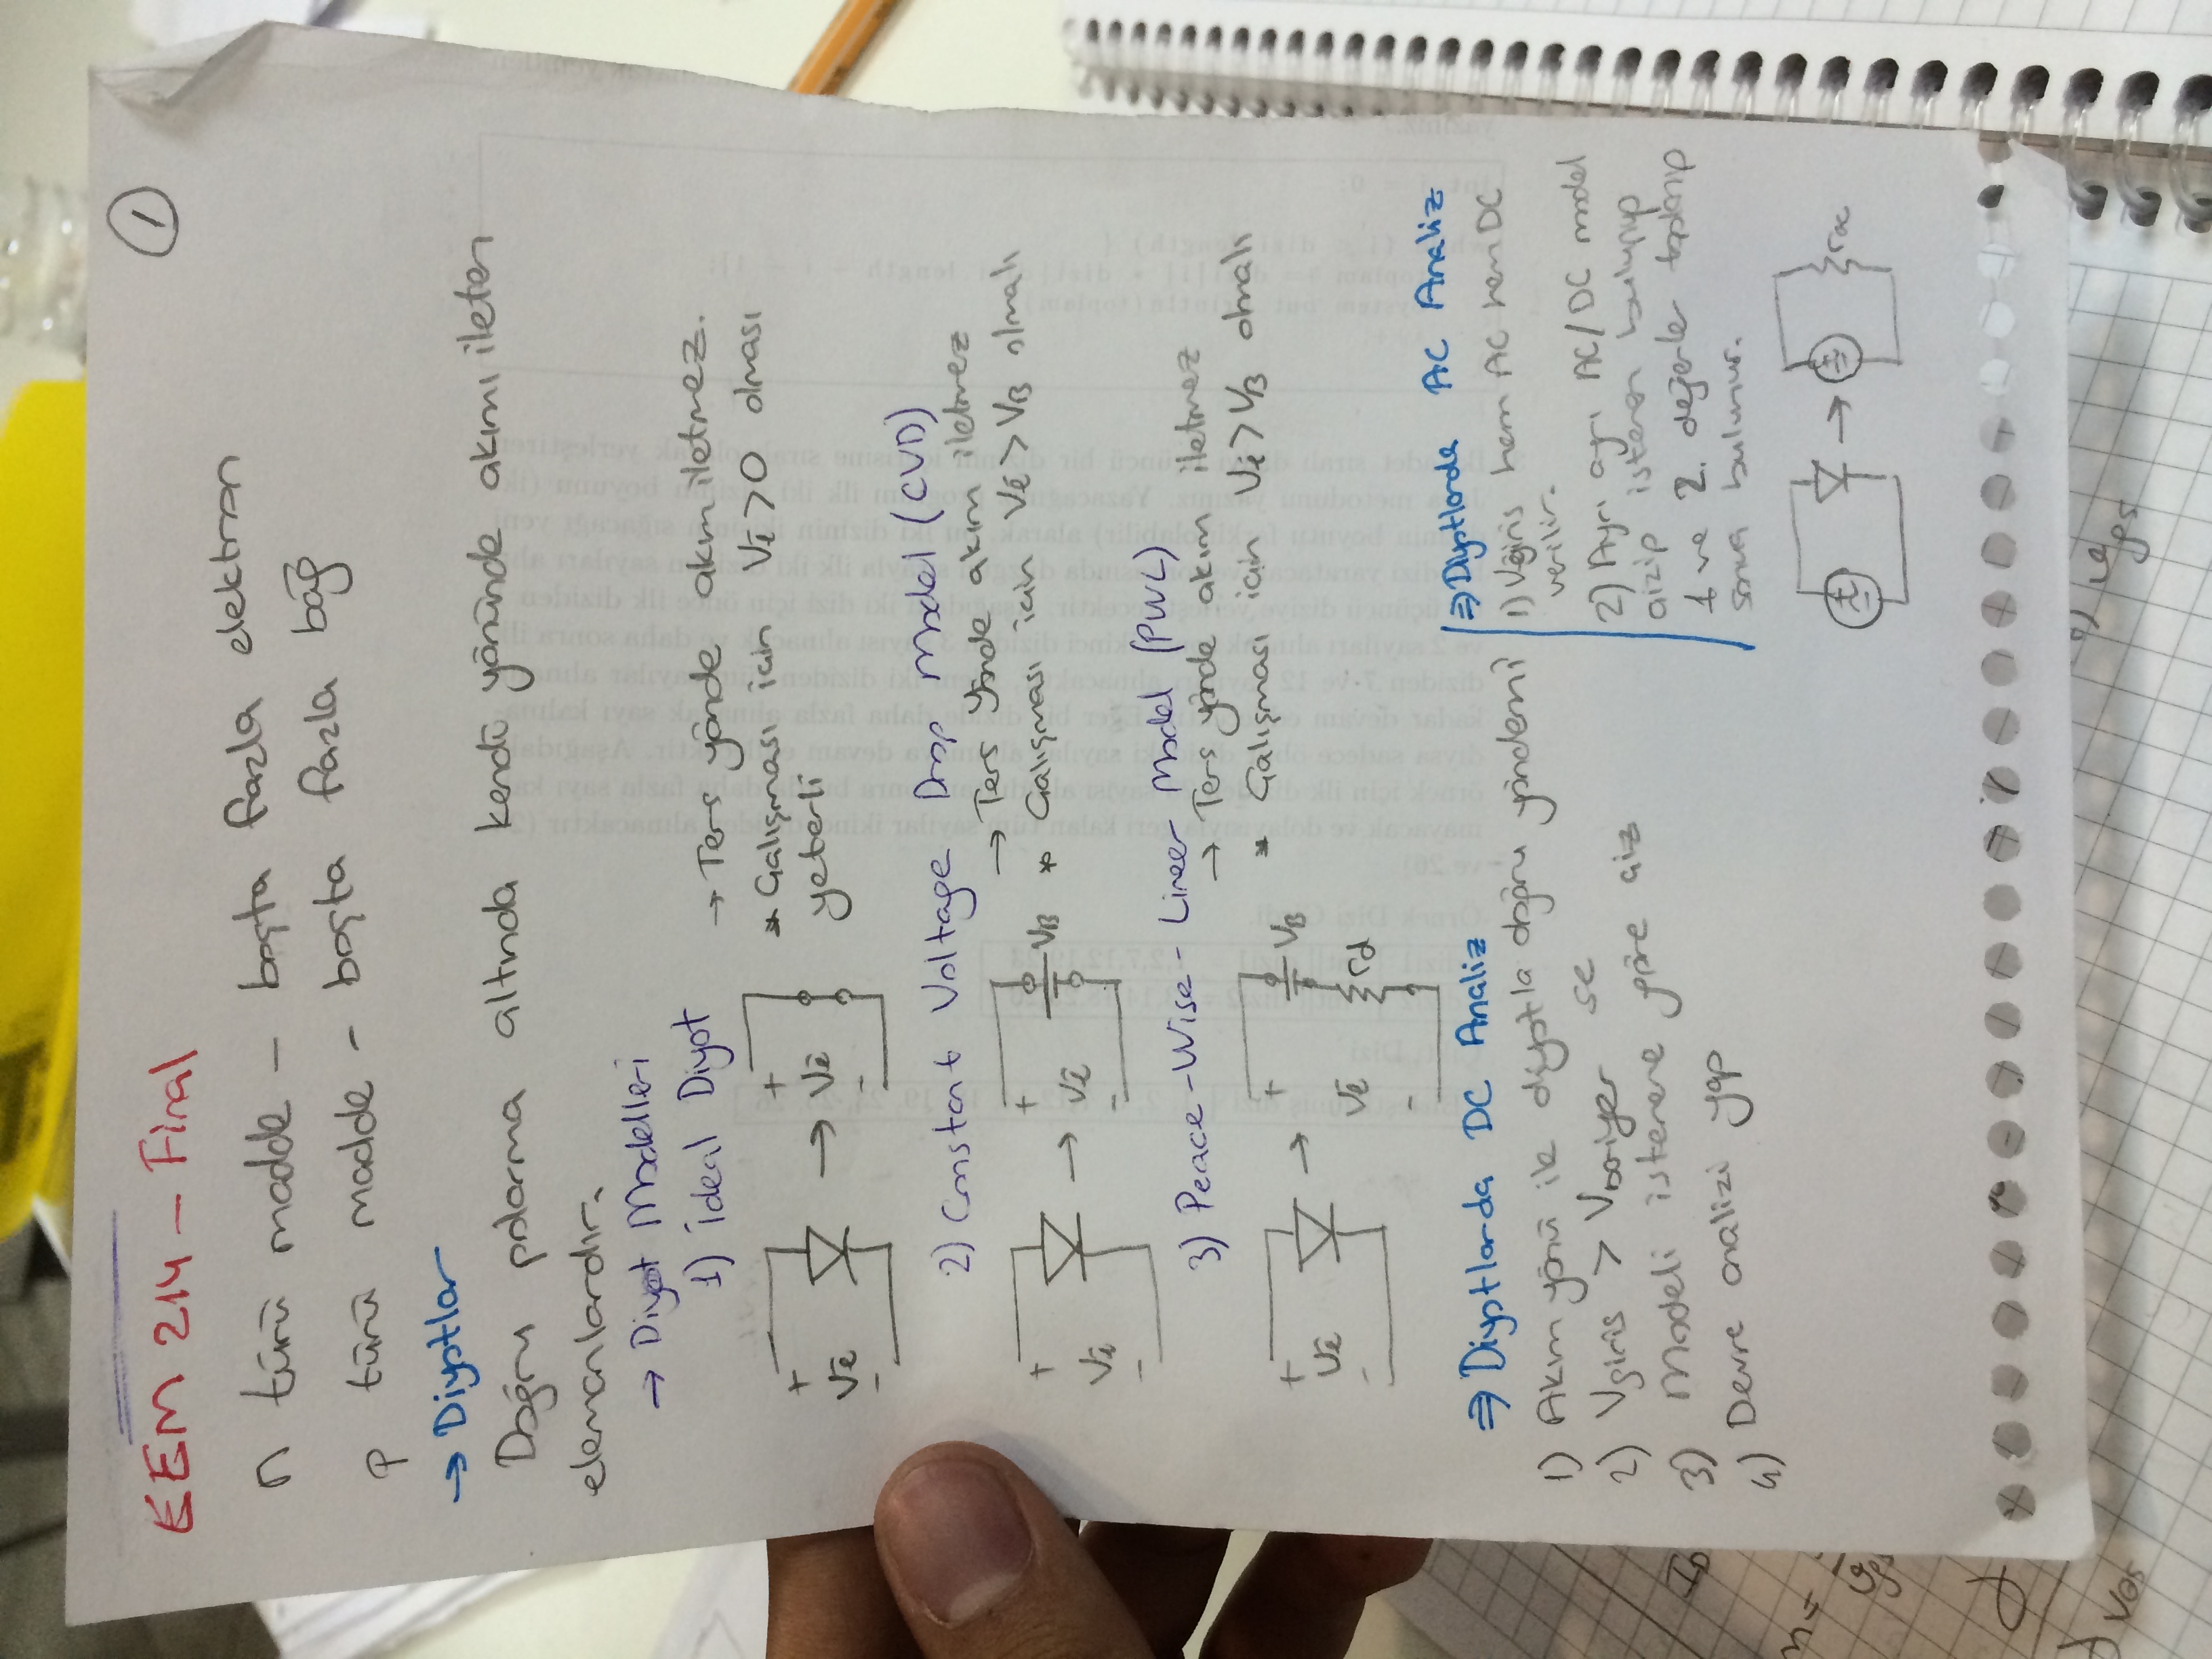 1
EEM 214 - Final
n türü madde - boşta fazla elektron
p türü madde - boşta fazla bağ
→ Diyotlar
Doğru polarma altında kendi yönünde akımı ileten
elemanlardır.
→ Diyot Modelleri
1) İdeal Diyot
→ Ters yönde akım iletmez.
* Çalışması için Vi > 0 olması
yeterli
+ Vi - → + Vi -
2) Constant Voltage Drop Model (CVD)
→ Ters yönde akım iletmez
* Çalışması için Vi > VB olmalı
+ Vi - → + Vi - VB
3) Peace-Wise-Lineer Model (PWL)
→ Ters yönde akım iletmez
* Çalışması için Vi > VB olmalı
+ Vi - → + Vi - VB rd
⇒ Diyotlarda DC Analiz
1) Akım yönü ile diyotla doğru yöndemi
2) Vgiris > Vbariyer se
3) Modeli istenene göre çiz
4) Devre analizi yap
⇒ Diyotlarda AC Analiz
1) Vgiris hem AC hem DC
verilir.
2) Ayrı ayrı AC/DC model
çizip istenen bulunup
1 ve 2. değerler toplanıp
sonuç bulunur.
→ rac